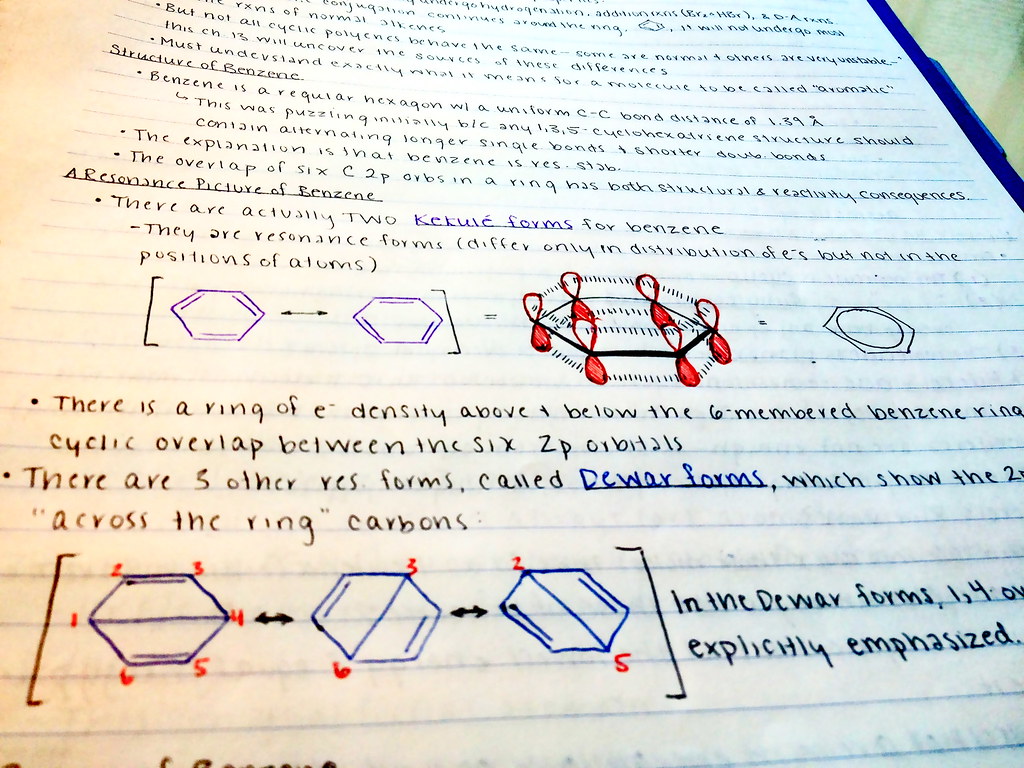 undergo hydrogenation, addition rxns (Br₂ + HBr), & D-A rxns
rxns of normal alkenes
conjugation continues around the ring. , it will not undergo most
• But not all cyclic polyenes behave the same - some are normal + others are very unstable..
this ch. 13 will uncover the sources of these differences
• Must understand exactly what it means for a molecule to be called "aromatic"
Structure of Benzene
• Benzene is a regular hexagon w/ a uniform C-C bond distance of 1.39 Å
↳ This was puzzling initially b/c any 1,3,5-cyclohexatriene structure should
contain alternating longer single bonds + shorter doub. bonds
• The explanation is that benzene is res. stab.
• The overlap of six C 2p orbs in a ring has both structural & reactivity consequences.
A Resonance Picture of Benzene
• There are actually TWO Kekulé forms for benzene
-They are resonance forms (differ only in distribution of e⁻s but not in the
positions of atoms)
= =
• There is a ring of e⁻ density above + below the 6-membered benzene ring
cyclic overlap between the six 2p orbitals
• There are 3 other res. forms, called Dewar forms, which show the 2p
"across the ring" carbons:
2 3 3 2
1 4
6 5 6 5
In the Dewar forms, 1,4-ov
explicitly emphasized.
of Benzene